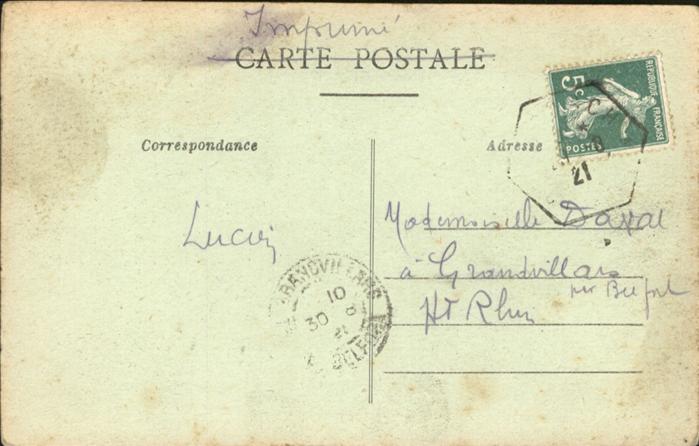 Imprimé
CARTE POSTALE
Correspondance
Adresse
RÉPUBLIQUE FRANÇAISE
5c
POSTES
CH
21
Lucien
Mademoiselle Daval
à Grandvillars
par Belfort
Ht Rhin
GRANDVILLARS
10
30 8
21
BELFORT